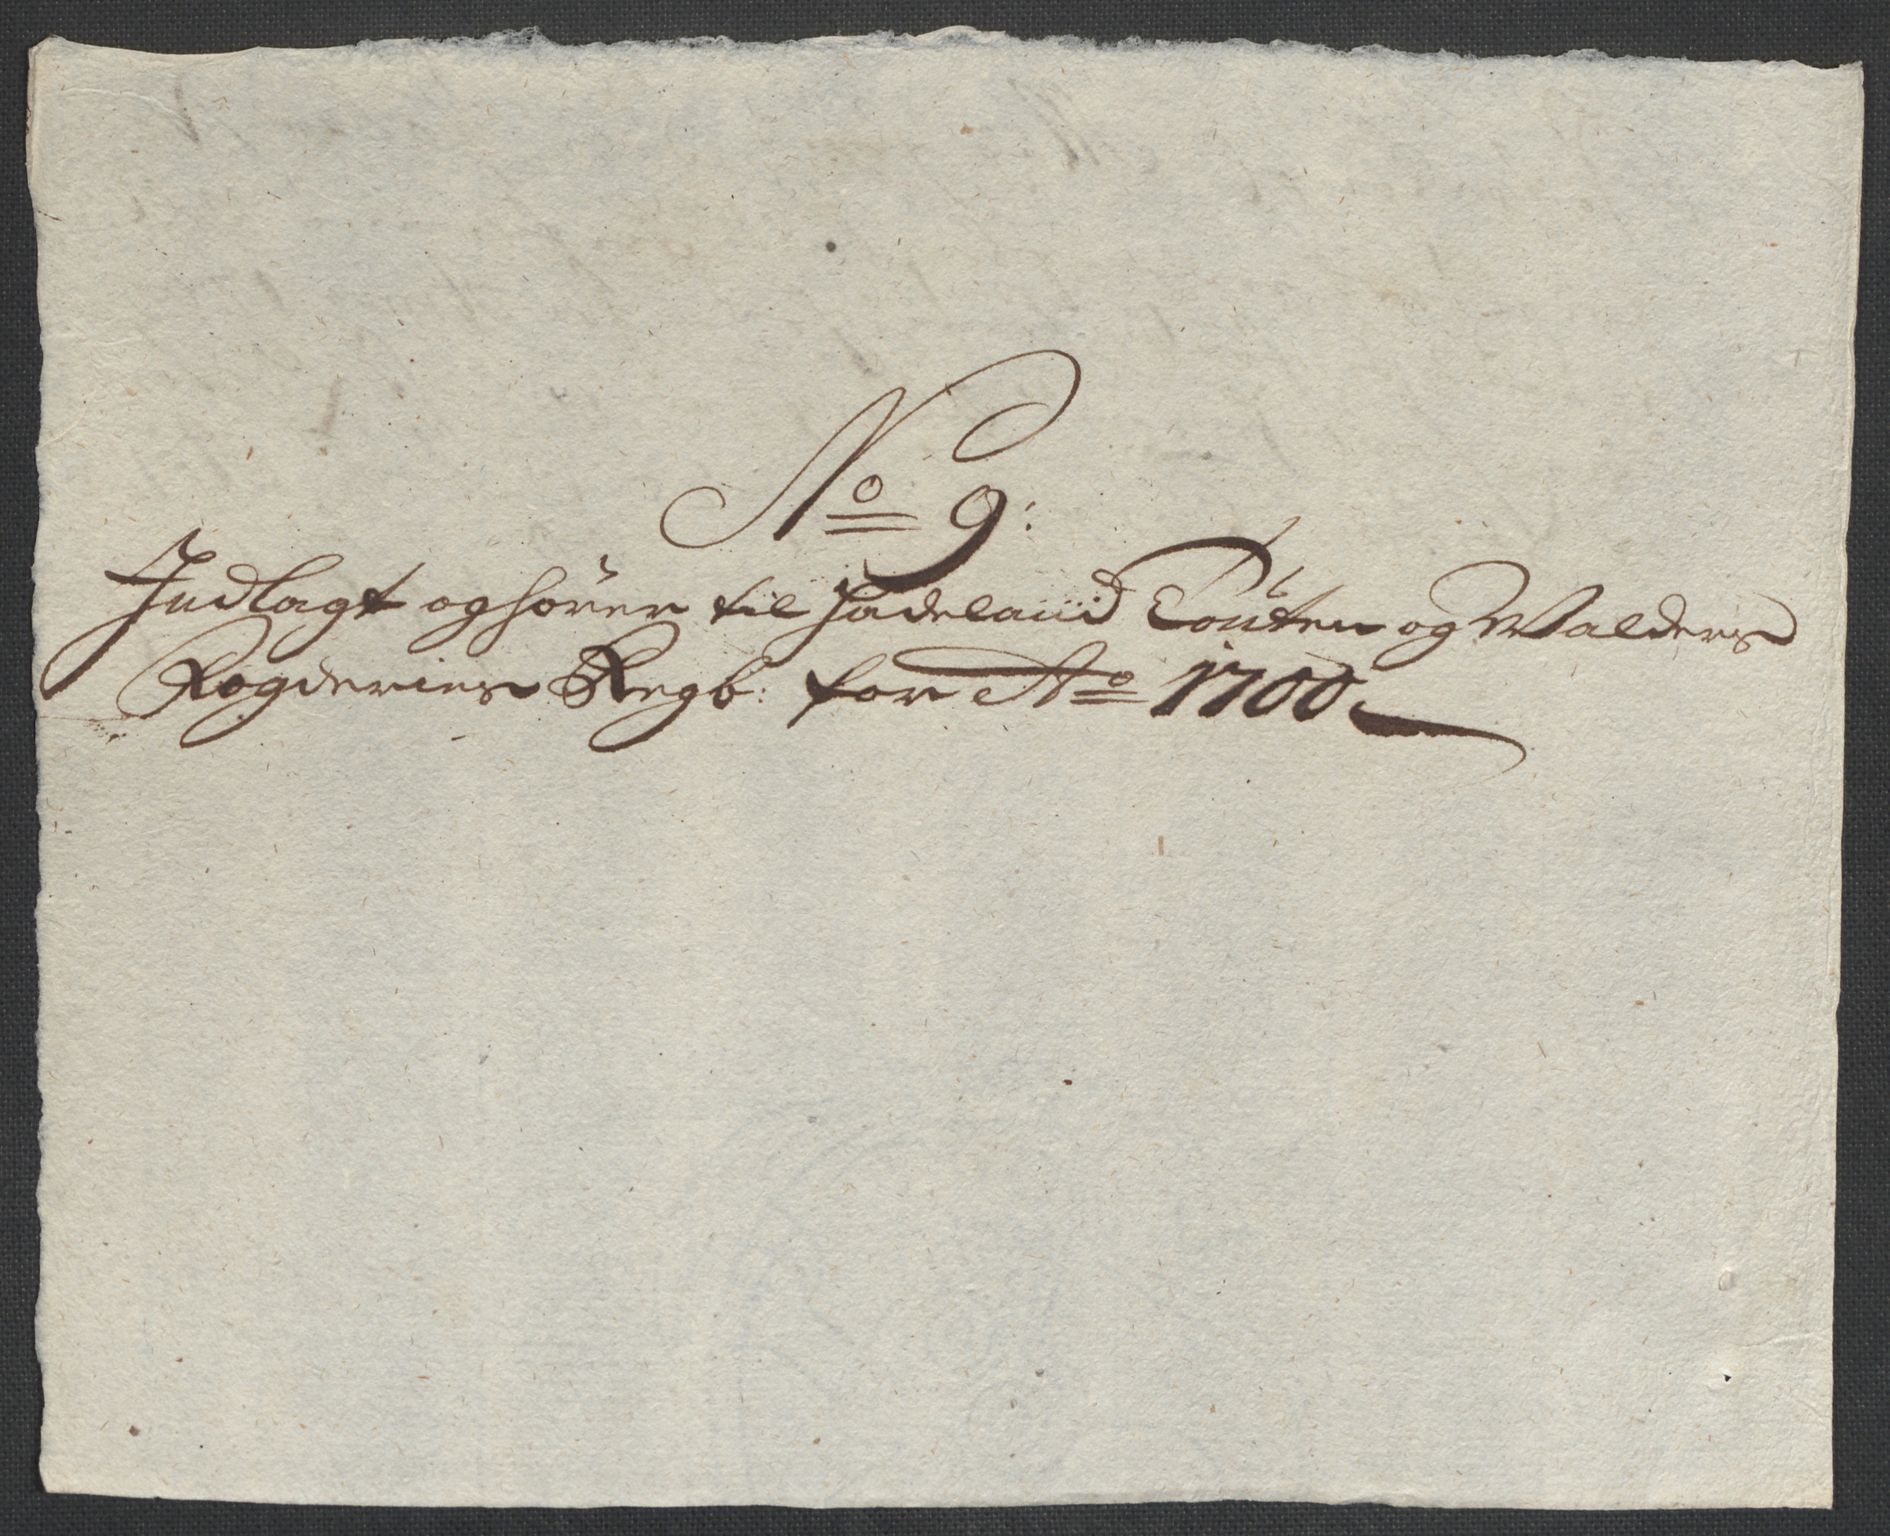 No 9:
Indlagt og hörer til Hadeland Touten og Walders
Fogderies Regb: for Ao 1700